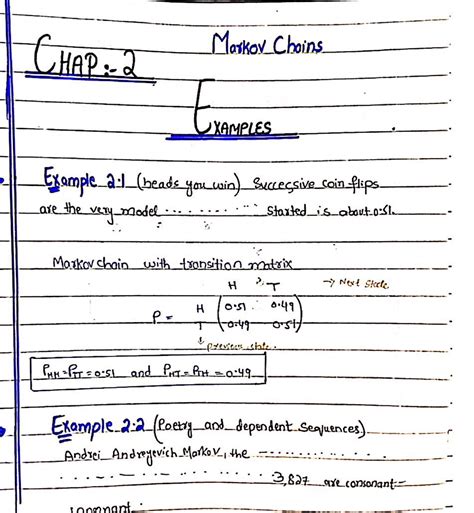 Markov Chains
CHAP:- 2
EXAMPLES
Example 2.1 (heads you win) Successive coin flips
are the very model ......... Started is about 0.51.
Markov chain with transition matrix
H T → Next State
P = H (0.51 0.49
T 0.49 0.51)
↓ previous state
PHH = PTT = 0.51 and PHT = PTH = 0.49
Example 2.2 (Poetry and dependent sequences)
Andrei Andreyevich Markov, the ...............
............... 3,827 are consonant-